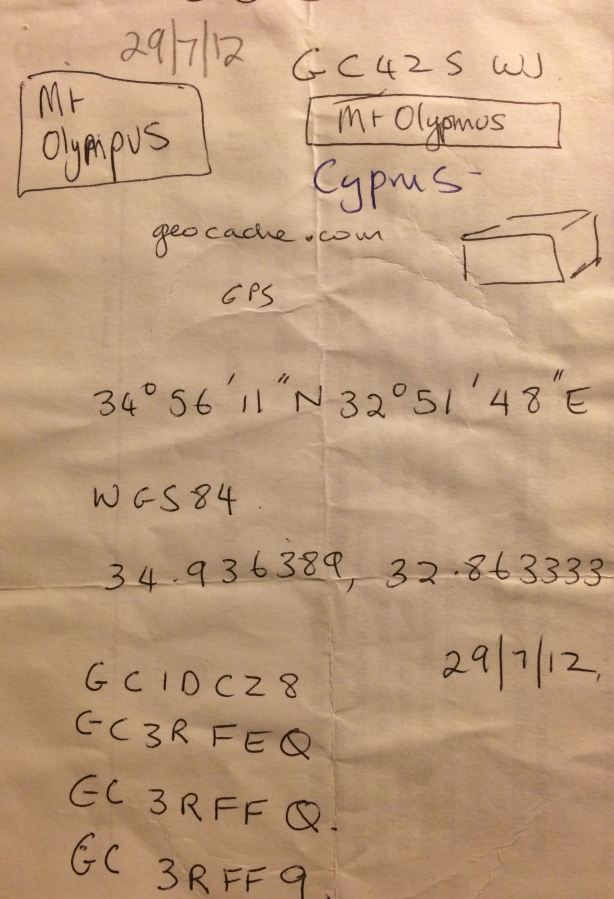 29/7/12
GC42SWJ
Mt
Olympus
Mt Olypmus
Cyprus
geocache.com
GPS
34° 56' 11" N 32° 51' 48" E
WGS84
34.936389, 32.863333
29/7/12,
GC1DCZ8
GC3RFEQ
GC3RFFQ.
GC3RFF9